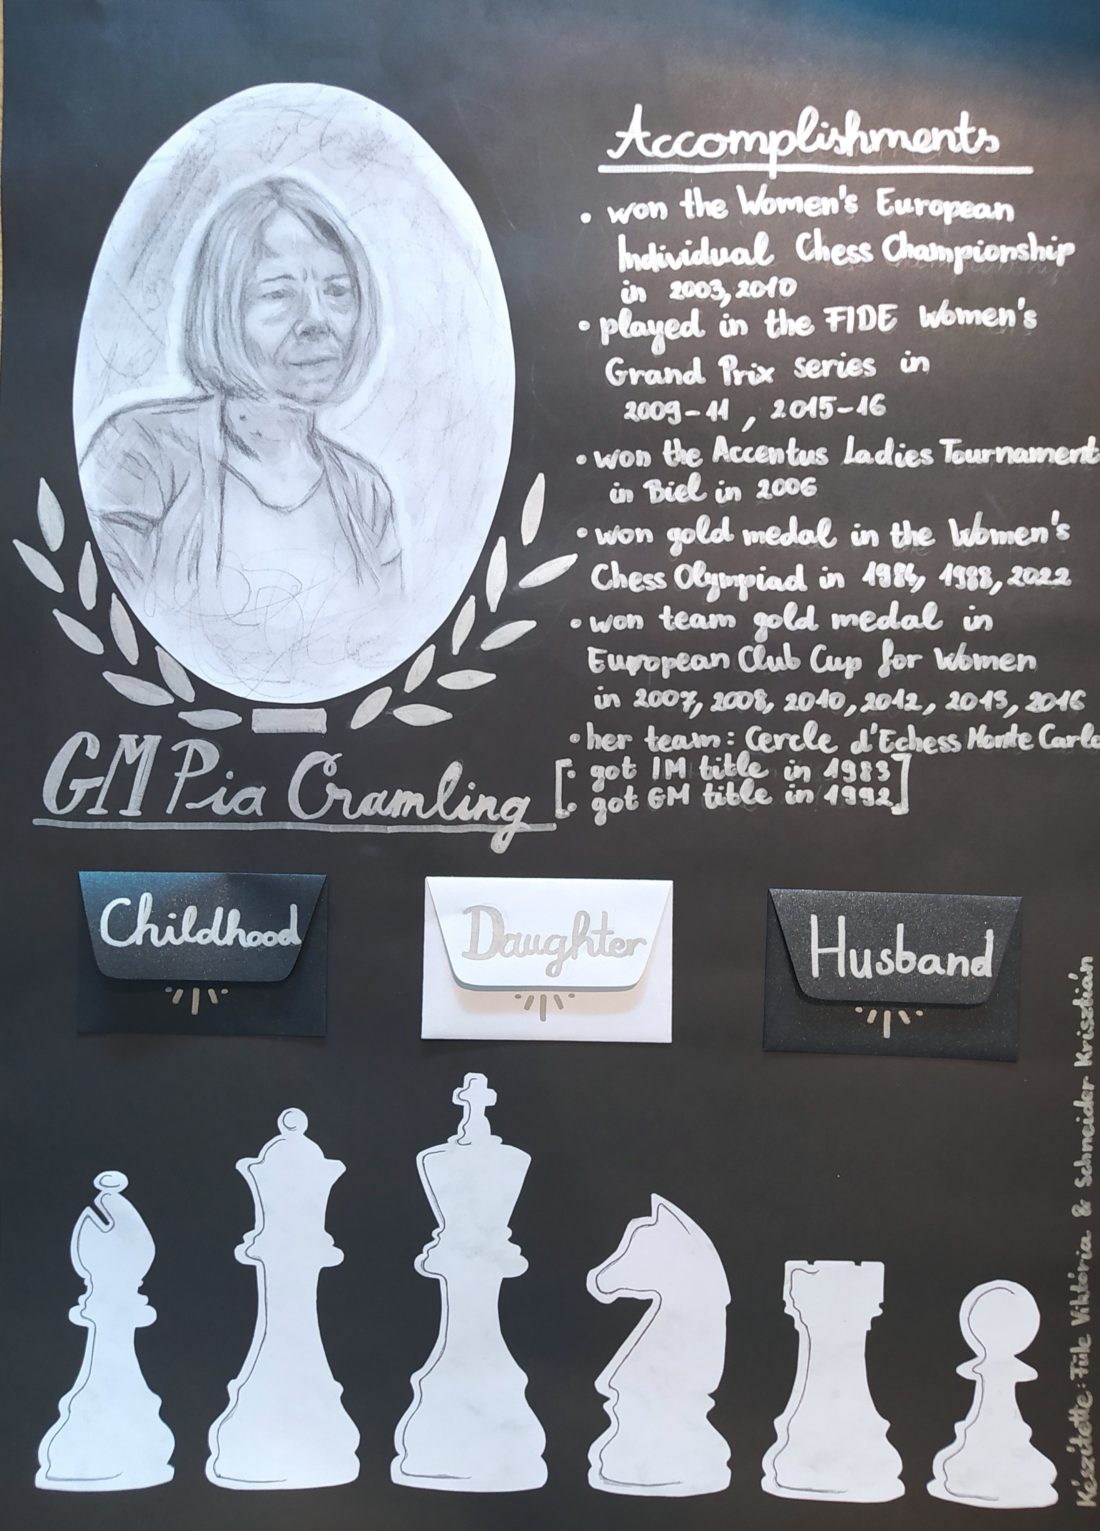 Accomplishments
• won the Women's European
Individual Chess Championship
in 2003, 2010
• played in the FIDE Women's
Grand Prix series in
2009-11, 2015-16
• won the Accentus Ladies Tournament
in Biel in 2006
• won gold medal in the Women's
Chess Olympiad in 1984, 1988, 2022
• won team gold medal in
European Club Cup for Women
in 2007, 2008, 2010, 2012, 2013, 2016
• her team: Cercle d'Echess Monte Carlo
[• got IM title in 1983]
[• got GM title in 1992]
GM Pia Cramling
Childhood
Daughter
Husband
Készítette: Füle Viktória & Schneider Krisztián